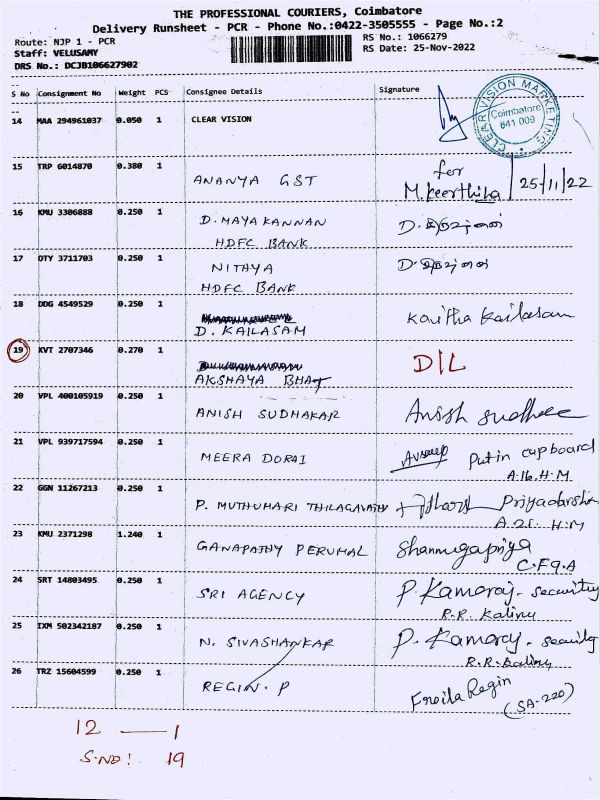 THE PROFESSIONAL COURIERS, Coimbatore
Delivery Runsheet - PCR - Phone No.:0422-3505555 - Page No.:2
Route: NJP 1 - PCR
RS No.: 1066279
Staff: VELUSAMY
RS Date: 25-Nov-2022
DRS No.: DCJB106627902
S No Consignment No Weight PCS Consignee Details Signature
14 MAA 294961037 0.050 1 CLEAR VISION
CLEAR VISION MARKETING
Coimbatore
641 009
15 TRP 6014870 0.380 1 ANANYA GST for
M.Keerthika 25/11/22
16 KMU 3306888 0.250 1 D. MAYAKANNAN D.
HDFC BANK
17 OTY 3711703 0.250 1 NITHYA D.
HDFC BANK
18 DDG 4549529 0.250 1 Kavitha Kailasam
D. KAILASAM
19 KVT 2707346 0.270 1 D/L
AKSHAYA BHAT
20 VPL 400105919 0.250 1 ANISH SUDHAKAR Anish
21 VPL 939717594 0.250 1 MEERA DORAI Put in cupboard
A.16, H.M
22 GGN 11267213 0.250 1 P. MUTHUMARI THILAGAVATHY Priyadarshin
H.M
23 KMU 2371298 1.240 1 GANAPATHY PERUMAL Shanmugapriya
24 SRT 14803495 0.250 1 SRI AGENCY P. Kamaraj - security
R.R.
25 IXM 502342187 0.250 1 N. SIVASHANKAR P. Kamaraj - security
R.R.
26 TRZ 15604599 0.250 1 REGIN. P Regin
(SA-220)
12 — 1
S.NO: 19